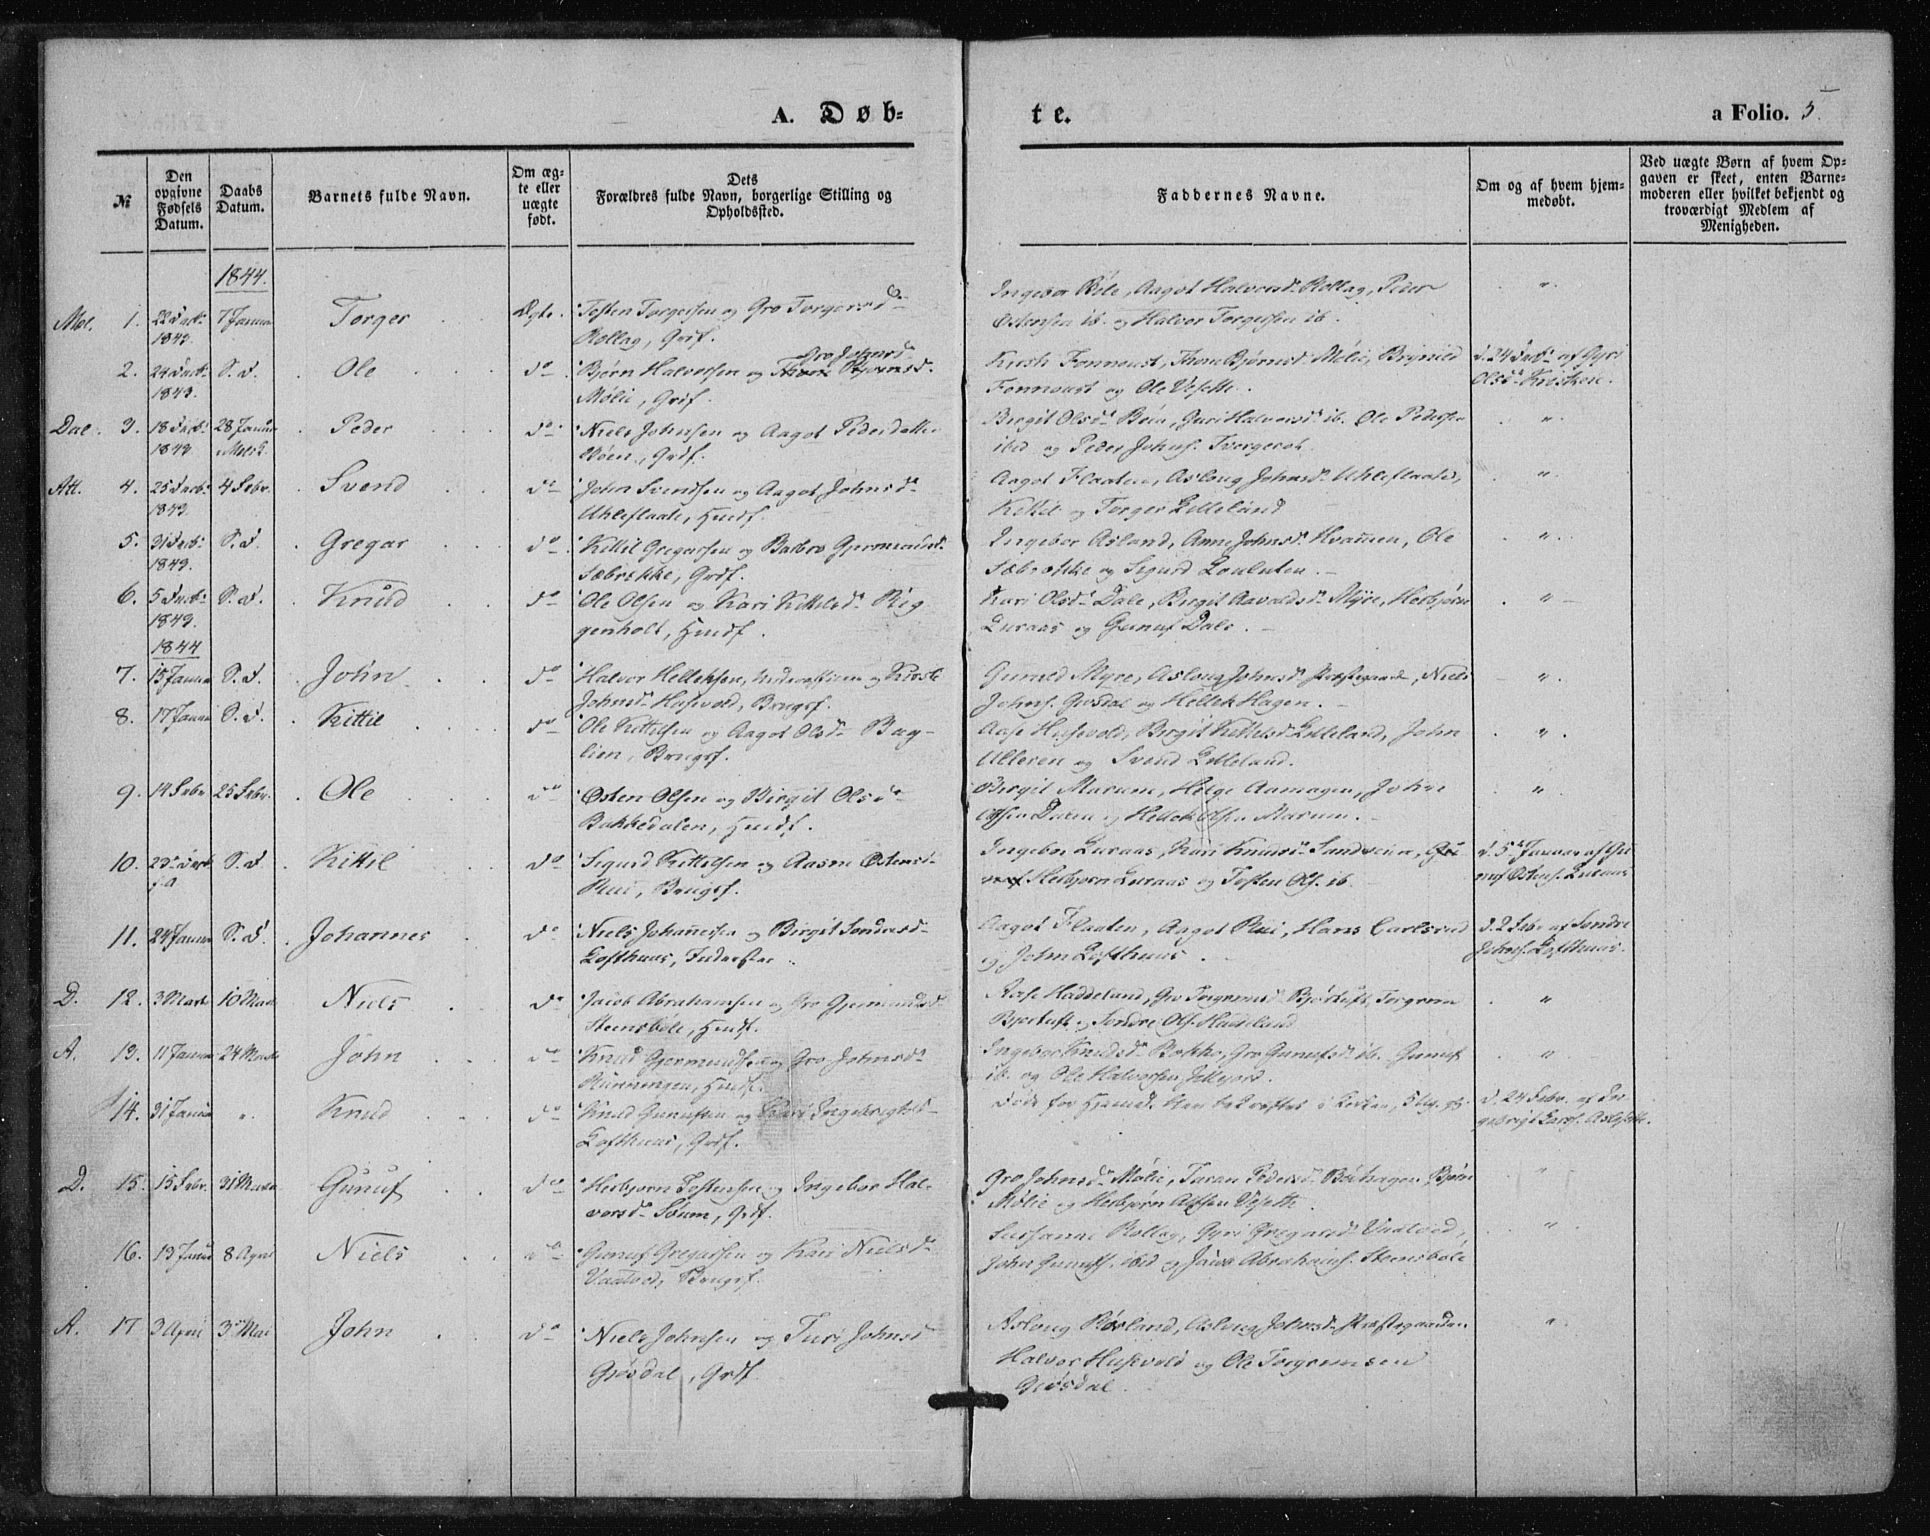 A. Døb-
te.
a Folio. 5
№
Den opgivne Fødsels Datum.
Daabs Datum.
Barnets fulde Navn.
Om ægte eller uægte født.
Dets Forældres fulde Navn, borgerlige Stilling og Opholdssted.
Faddernes Navne.
Om og af hvem hjemmedøbt.
Ved uægte Børn af hvem Opgaven er skeet, enten Barnemoderen eller hvilket bekjendt og troværdigt Medlem af Menigheden.
1844.
Mol. 1. 22 Decbr 1843. 7 Januar Torger Ægte. Tosten Torgersen og Gro Torgersdr
Rollag, Grdf.
Aagot Halvorsdr Rollag, Peder
Ostensen ib. og Halvor Torgersen ib.
2. 24 Decbr 1843. S.d. Ole do Bjørn Halvorsen og Gro Johnsd.
Mølie, Grdf.
Thone Bjørnsd Mølie, Brynild
og Ole Vesette.
d. 24 Decbr af Gyri
Olsdr
Dal. 3. 18 Decbr 1843 28 Januar Peder do Niels Johnsen og Aagot Pedersdatter
Bøen, Grdf.
Birgit Olsdr Bøen, Guri Halvorsdr ib. Ole Pedersen
ibid og Peder Johns.
Att. 4. 25 Decbr 1843 4 Febr. Svend do John Svendsen og Aagot Johnsdr
Uhleflaate, Husf.
Aagot Flaaten, Aslaug Johnsdr Uhleflaate,
Kittil og Torger Lilleland
5. 31 Decbr 1843. S.d. Gregar do Kittil Gregarsen og Barbro Gjermundsd.
Sæbrekke, Grdf.
Ingebor Asland, Anne Johnsdr Ole
Sæbrekke og Sigurd
6. 5 Decbr 1843. S.d. Knud do Ole Olsen og Kari Kittelsdr Rig-
genholt, Husf.
Kari Olsdr Dale, Birgit Aavaldsdr Myre, Herbjørn
Luraas og Gunuf Dale.
1844
7. 15 Januar S.d. John do Halvor Helleksen, og
Johnsdr Husevold, Brugsf.
Gunild Myre, Aslaug Johnsdr Præstegaard, Niels
Johns. Grøsdal og Hellek Hagen.
8. 17 Januar S.d. Kittil do Ole Kittilsen og Aagot Olsdr Bag-
lien, Brugsf.
Aase Husevold, Birgit Kittelsdr Lilleland, John
og Svend Lilleland.
9. 14 Febr 25 Febr. Ole do Østen Olsen og Birgit Olsdr
Bakkedalen, Husf.
Birgit Marum, Helge John
Olsen Dalen og Hellek Olsen Marum.
10. S.d. Kittil do Sigurd Kittilsen og Aasne Østensd.
Rui, Brugsf.
Ingebor Luraas, Kari Knudsdr
Herbjørn Luraas og Tosten Ols. ib.
d. 5te Januar af Gu-
nuf Østens. Luraas
11. 24 Januar S.d. Johannes do Niels Johannessen og Birgit Sondresdr
Lofthuus, Inderster.
Aagot Flaaten, Aagot Rui, Hans Carlsrud
og John Lofthuus.
d. 2 Febr af Sondre
Johns. Lofthuus.
D. 12. 3 Marts 10 Marts Niels do Jacob Abrahamsen og Gro Gjermundsd
Steensbøle, Husf.
Aase Haddeland, Gro Torgrimsdr Bjørtuft, Torgrim
Bjørtuft og Sondre Ols. Haddeland
A. 13. 11 Januar 24 Marts John do Knud Gjermundsen og Gro Johnsdr
Rønningen, Husf.
Ingebor Knudsdr Bakke, Gro Gunufsdr ib. Gunuf
ib. og Ole Halvorsen
14. 31 Januar Knud do Knud Gunufsen og Kari Ingebrigtsd.
Lofthuus, Grdf.
Døde før i Kirken,
d. 24 Febr. af In-
gebrigt Lars.
D. 15. 15 Febr. 31 Marts Gunuf do Herbjørn Tostensen og Ingebor Hal-
vorsdr Søum, Grdf.
Gro Johnsdr Mølie, Turan Pedersdr Bøhagen, Bjørn
Mølie og Herbjørn Vesette.
16. 13 Januar 8 April Niels do Gunuf Gregarsen og Kari Nielsdr
Vaalved, Brugsf.
Susanne Rollag, Gyri Gregarsdr Vaalved,
John Gunufs. ibid og Jacob Abrahams. Steensbøle
A. 17 3 April 3die Mai John do Niels Johnsen og Turi Johnsd
Grøsdal, Grdf.
Aslaug Røsland, Aslaug Johnsdr Præstegaarden
Halvor Husevold og Ole Torgrimsen
Grøsdal.